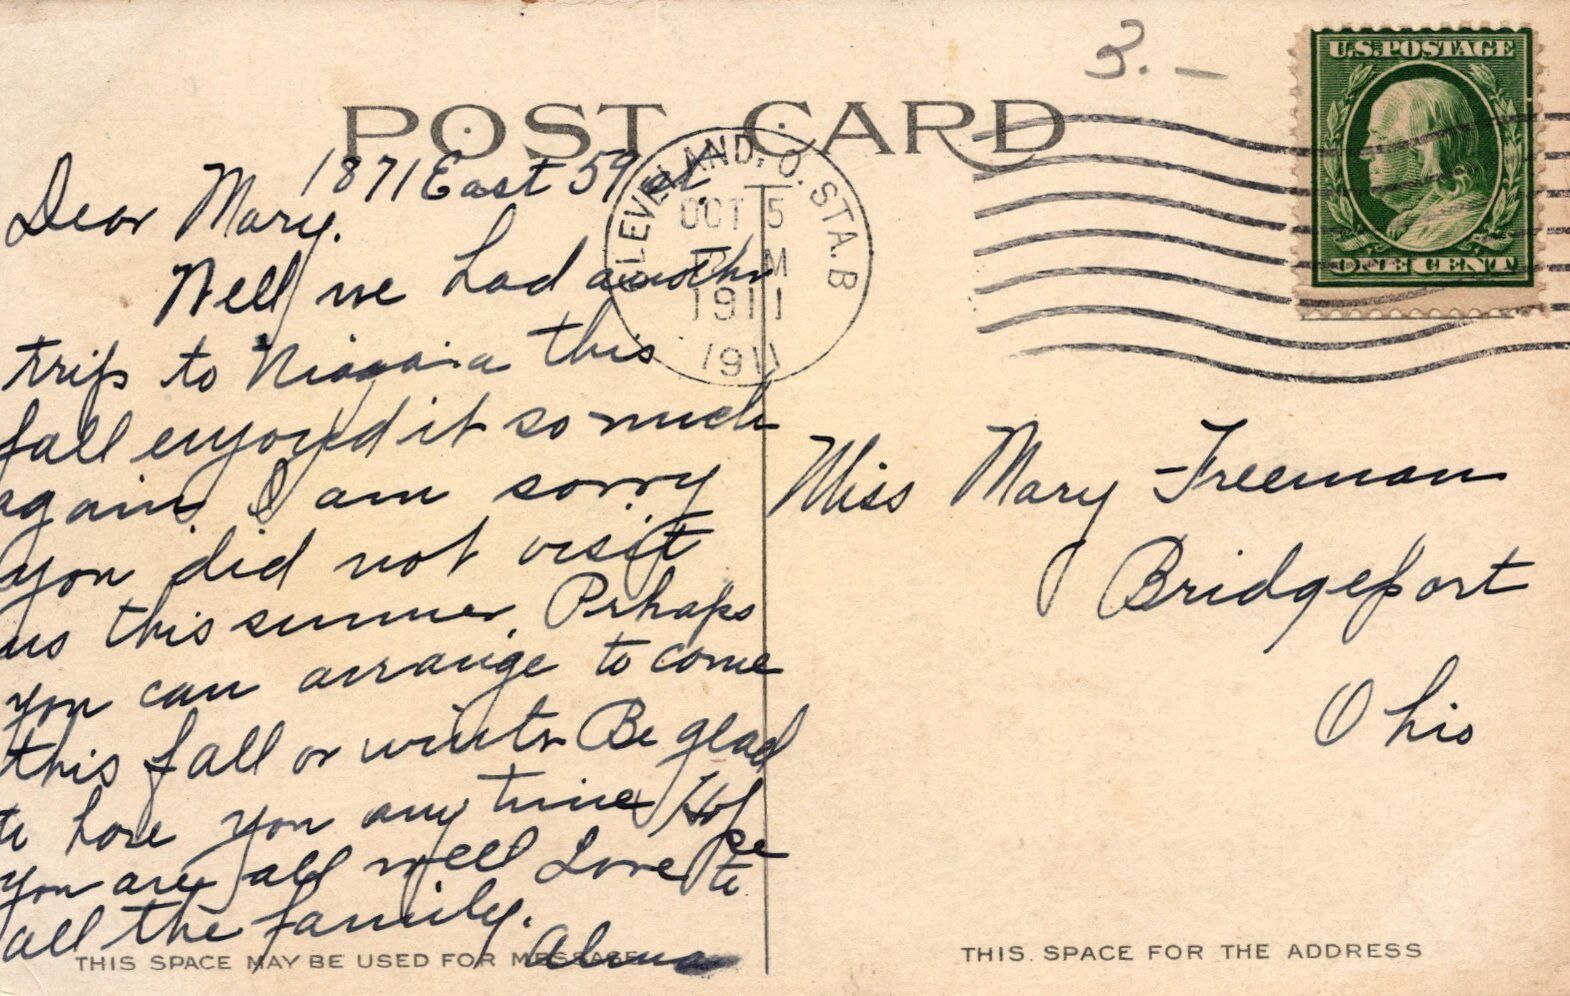 POST CARD
3.-
U.S. POSTAGE
ONE CENT
CLEVELAND, O. STA. B
OCT 5
M
1911
1911
1871 East 59 st.
Dear Mary.
Well we had another
trip to Niagara this
fall enjoyed it so much
again. I am sorry
you did not visit
us this summer. Perhaps
you can arrange to come
this fall or winter Be glad
to have you any time Hope
you are all well Love to
all the family.
Alma
Miss Mary Freeman
Bridgeport
Ohio
THIS SPACE MAY BE USED FOR MESSAGE
THIS SPACE FOR THE ADDRESS